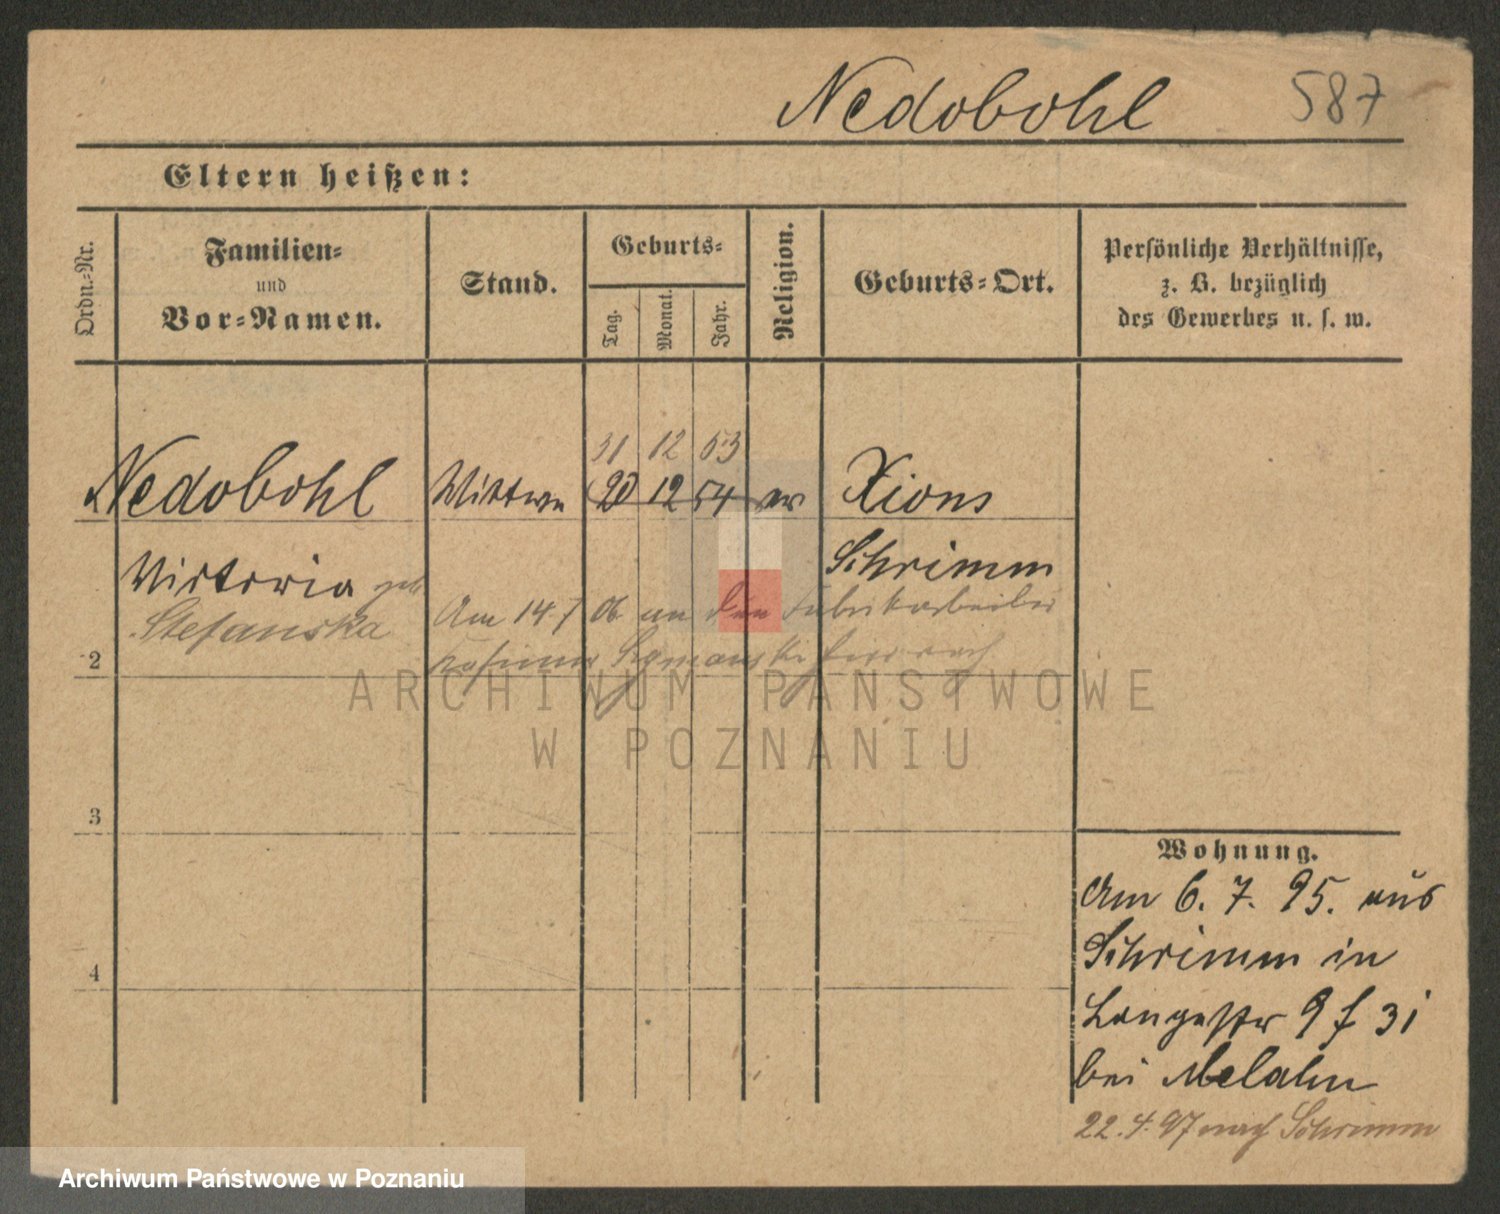 Nedobohl 587
Eltern heißen:
Ordn.-Nr.
Familien-
und
Vor-Namen.
Stand.
Geburts-
Tag.
Monat.
Jahr.
Religion.
Geburts-Ort.
Persönliche Verhältnisse,
z. B. bezüglich
des Gewerbes u. s. w.
31 12 53
Nedobohl Wittwe 20 12 54 Xions
Schrimm
Victoria geb
Stefanska
Am 14.7 06 an den Fabrikarbeiter
2
3
4
Wohnung.
Am 6. 7. 95. aus
Schrimm in
Langestr 9 f 31
bei Melahn
22.4.97 nach Schrimm
ARCHIWUM PAŃSTWOWE
W POZNANIU
Archiwum Państwowe w Poznaniu